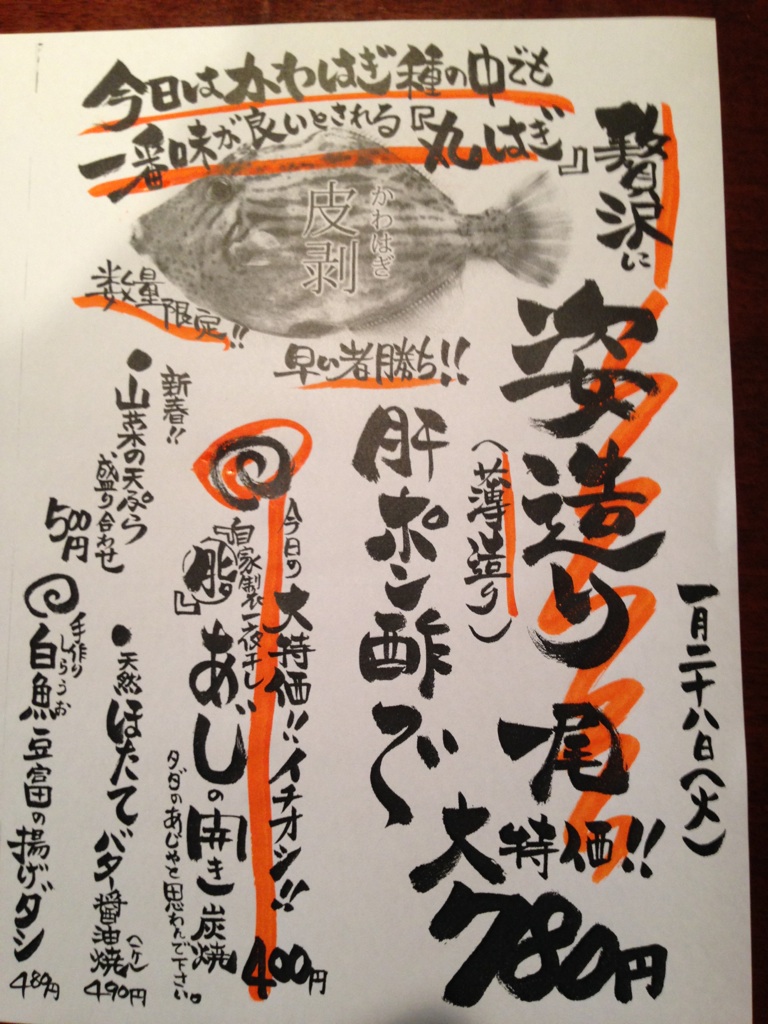 一月二十八日(火)
今日はかわはぎ種の中でも
一番味が良いとされる『丸はぎ』
かわはぎ
皮剥
数量限定!!
早い者勝ち!!
贅沢に
姿造り一尾
(薄造り)
大特価!!
780円
肝ポン酢で
今日の大特価!!イチオシ!!
自家製一夜干し
『脂』あじの開き炭焼
400円
タダのあじやと思わんで下さい。
新春!!
●山菜の天ぷら
盛り合わせ
500円
●天然ほたてバター醤油焼
(一ケ)
490円
手作り
しらうお
白魚豆富の揚げダシ
480円